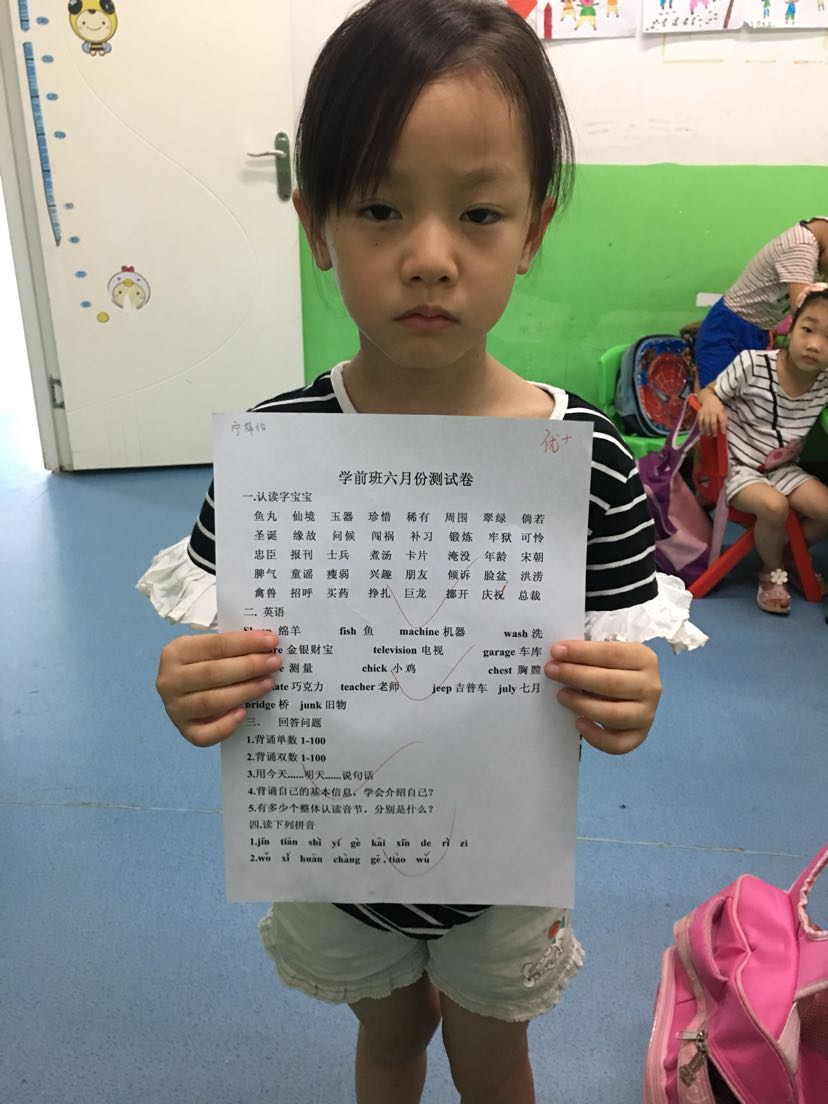 优+
学前班六月份测试卷
一.认读字宝宝
鱼丸 仙境 玉器 珍惜 稀有 周围 翠绿 倘若
圣诞 缘故 问候 闯祸 补习 锻炼 牢狱 可怜
忠臣 报刊 士兵 煮汤 卡片 淹没 年龄 宋朝
脾气 童谣 瘦弱 兴趣 朋友 倾诉 脸盆 洪涝
禽兽 招呼 买药 挣扎 巨龙 挪开 庆祝 总裁
二. 英语
绵羊 fish 鱼 machine 机器 wash 洗
金银财宝 television 电视 garage 车库
测量 chick 小鸡 chest 胸膛
巧克力 teacher 老师 jeep 吉普车 july 七月
bridge 桥 junk 旧物
三. 回答问题
1.背诵单数 1-100
2.背诵双数 1-100
3.用今天......明天......说句话
4.背诵自己的基本信息，学会介绍自己？
5.有多少个整体认读音节，分别是什么？
四.读下列拼音
1.jīn tiān shì yí gè kāi xīn de rì zi
2.wǒ xǐ huān chàng gē , tiào wǔ